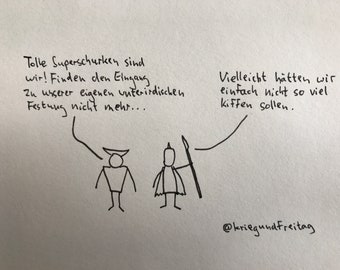 Tolle Superschurken sind
wir! Finden den Eingang
zu unserer eigenen unterirdischen
Festung nicht mehr...
Vielleicht hätten wir
einfach nicht so viel
kiffen sollen.
@kriegundfreitag